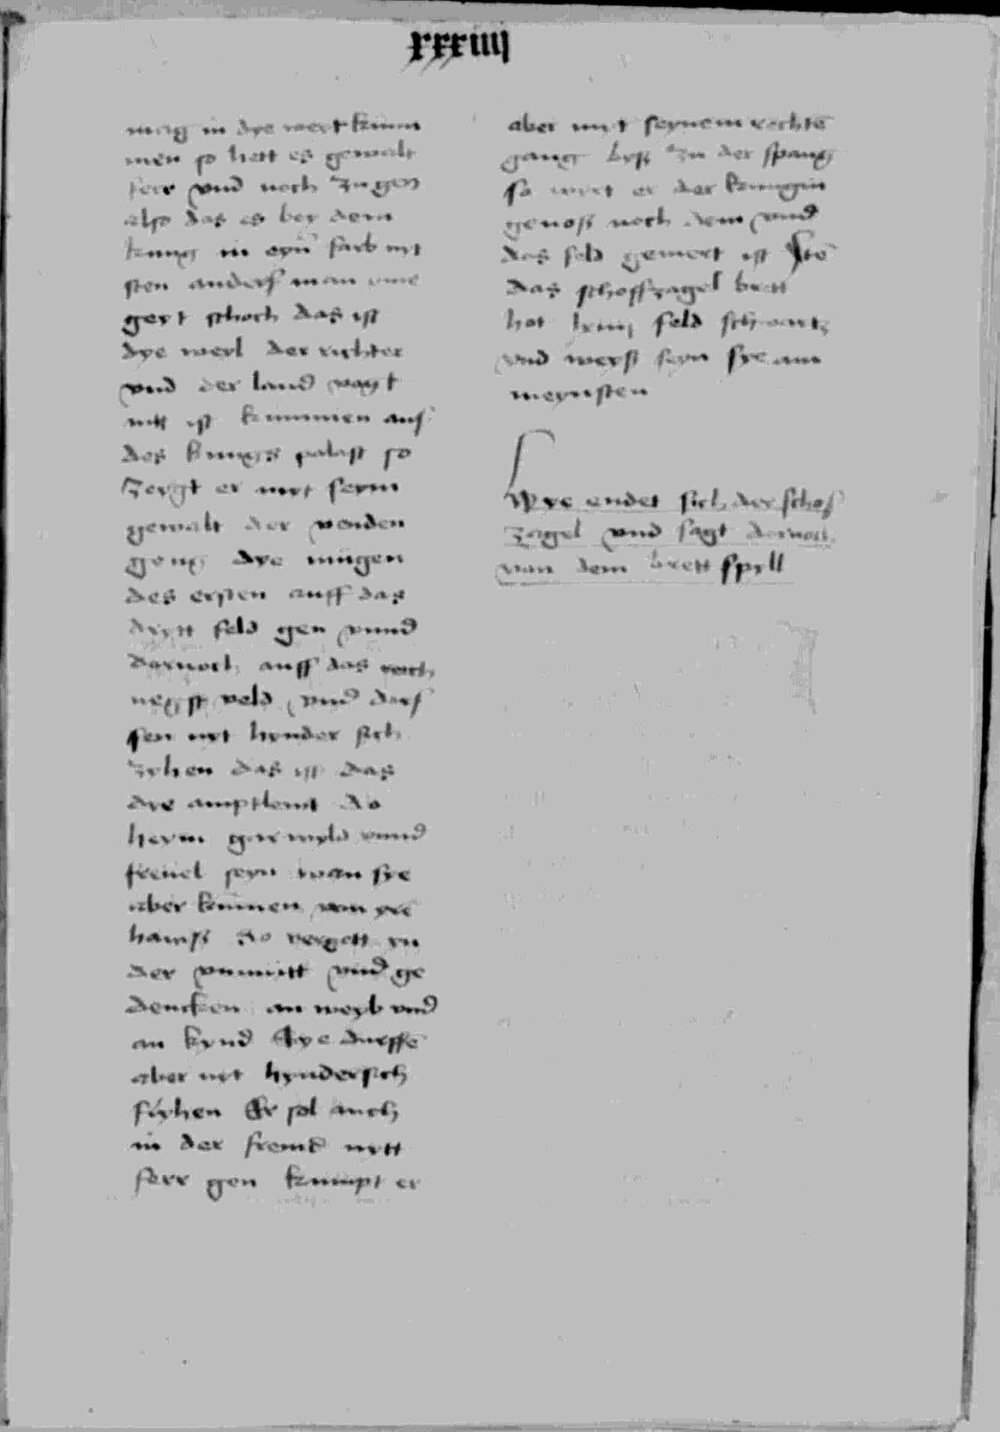 xxxiiij
mag in dye weyt kum
men so hett es gewalt
ferr vnd noch zu gen
also das es bey dem
kung in eyn̄ farb nyt
sten anders man
gert schoch das ist
dye weyl der richter
vnd der land voyt
nitt ist kummen aus
des kungs palast so
zeygt er nyt seym
gewalt der venden
geng dye mugen
des ersten auff das
drytt feld gen vnnd
dornoch auff das
negst veld vnd dorf
fen nyt hynder sich
zyhen das ist das
dye amptlewt do
heym gar wyld vnnd
freuel seyn wan sye
aber kummen von yrē
hawss do vergett yn
der vnmutt vnd ge
dencken an weyb vnd
an kynd Sye durffē
aber nyt hyndersich
sihen Er sol auch
in der fremd nytt
ferr gen kumpt er
aber myt seynem rechtē
gang byss zu der spang
so wirt er der kungin
genoss noch dem vnd
das feld geuiert ist Itē
das schoffzagel brett
hot lxiiij feld schwartz
vnd weyss seyn sye am
meynsten
Hye endet sich der schof
zagel vnd sagt dornoch
von dem brett spyll